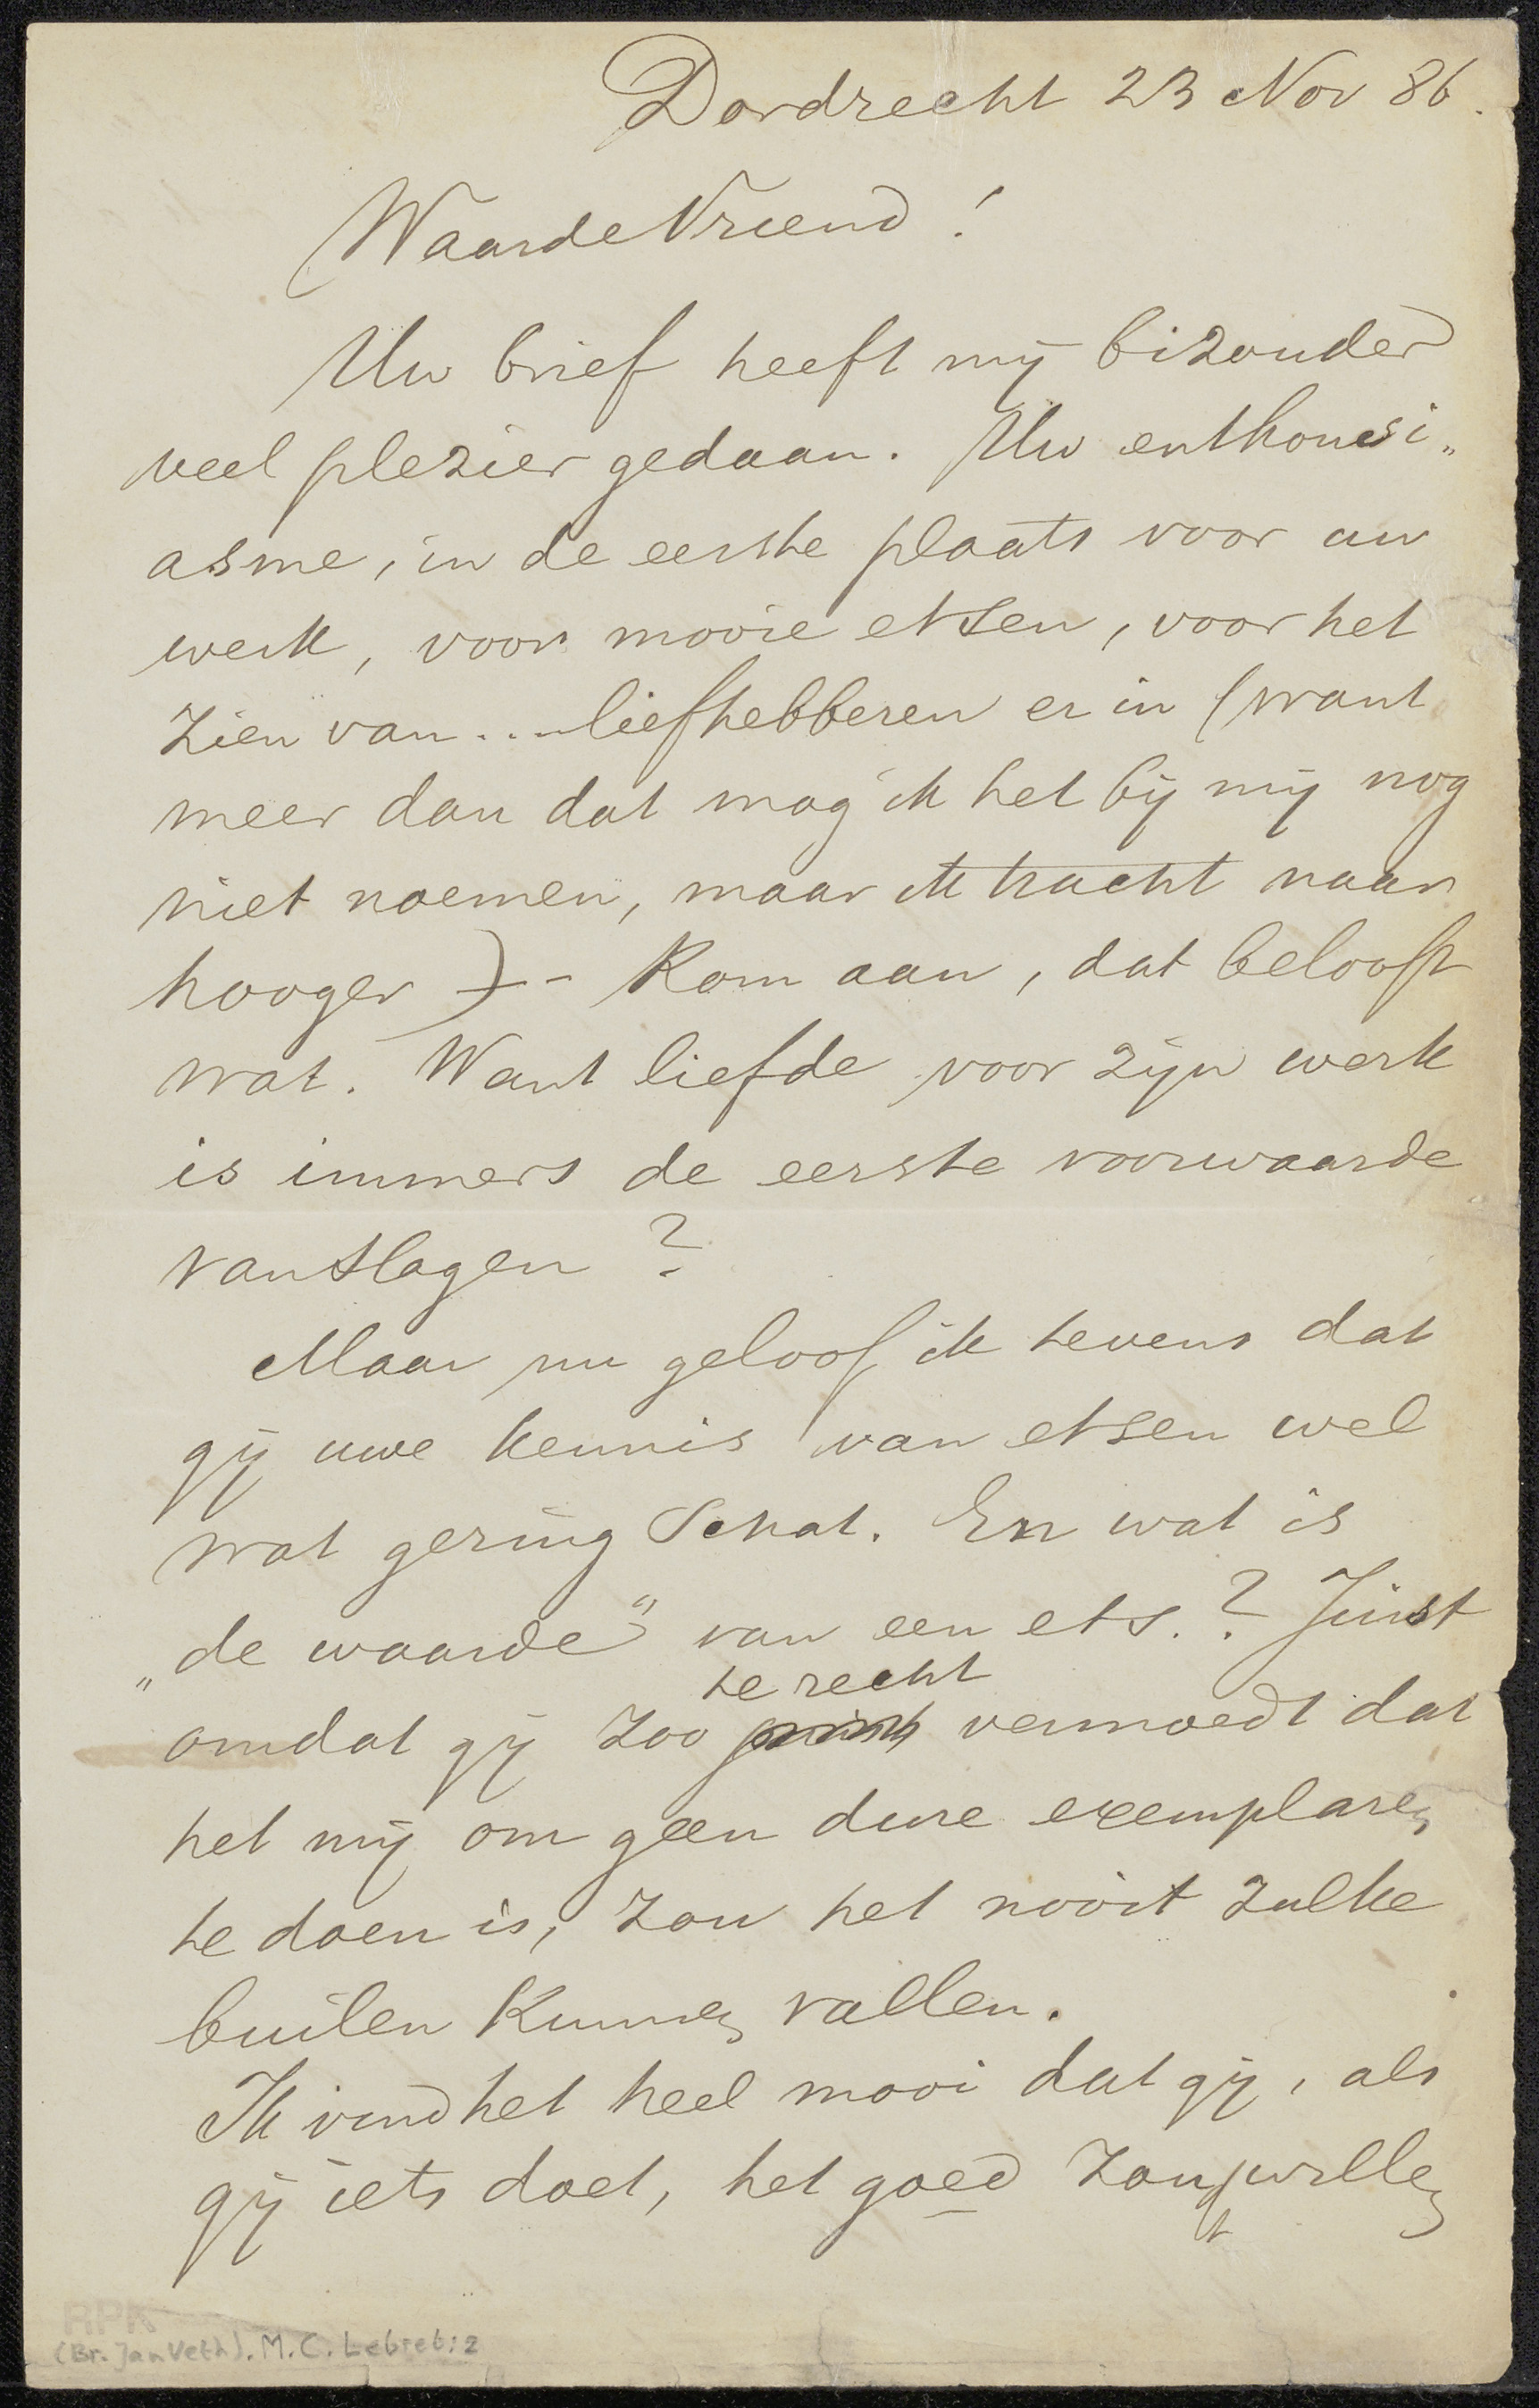 Dordrecht 23 Nov 86.
Waarde Vriend!
Uw brief heeft mij bizonder
veel plezier gedaan. Uw enthousi„
asme, in de eerste plaats voor uw
werk, voor mooie etsen, voor het
zien van...liefhebberen er in (want
meer dan dat mag ik het bij mij nog
niet noemen, maar ik tracht naar
hooger)- Kom aan, dat belooft
wat. Want liefde voor zijn werk
is immers de eerste voorwaarde
van slagen?
Maar nu geloof ik tevens dat
gij uwe kennis van etsen wel
wat gering schat. En wat is
„de waarde” van een ets.? Juist
te recht
omdat gij zoo vermoedt dat
het mij om geen dure exemplaren
te doen is, zou het nooit zulke
builen kunnen vallen.
Ik vind het heel mooi dat gij, als
gij iets doet, het goed zoudt willen
RPK
(Br. Jan Veth). M.C. Lebret: 2